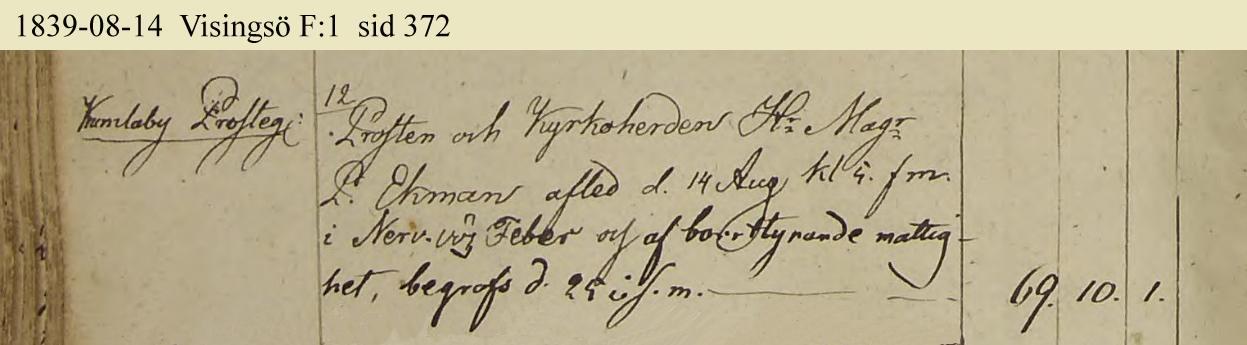 1839-08-14 Visingsö F:1 sid 372
Kumlaby Prosteg:
12
Prosten och Kyrkoherden Hr Magr
P. Ekman afled d. 14 Aug kl 5. fm.
i Nerv. Feber och af borttynande mattig-
het, begrofs d. 25 i s. m. 69. 10. 1.